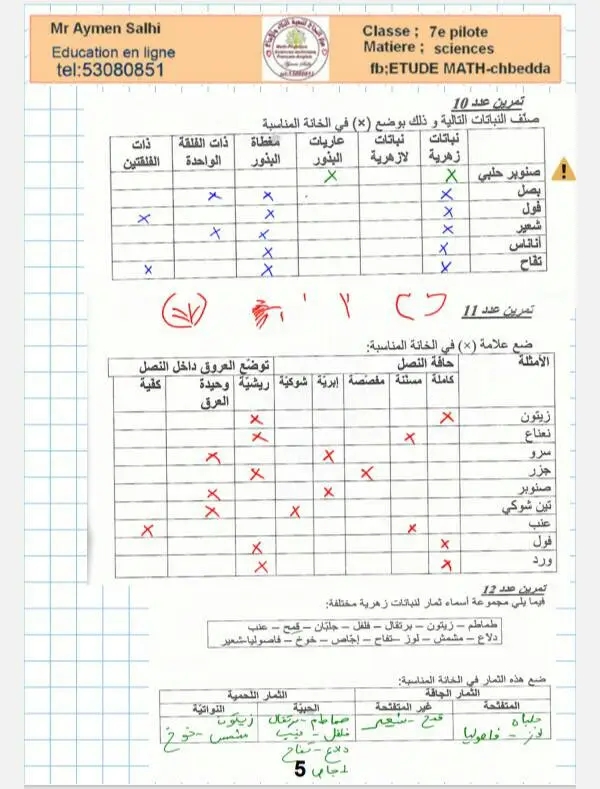 Mr Aymen Salhi
Education en ligne
tel:53080851
Classe ; 7e pilote
Matiere ; sciences
fb;ETUDE MATH-chbedda
تمرين عدد 10
صنّف النباتات التالية و ذلك بوضع (×) في الخانة المناسبة
نباتات زهرية نباتات لازهرية عاريات البذور مغطاة البذور ذات الفلقة الواحدة ذات الفلقتين
صنوبر حلبي × ×
بصل × × ×
فول × × ×
شعير × × ×
أناناس × ×
تفاح × × ×
تمرين عدد 11
ضع علامة (×) في الخانة المناسبة:
الأمثلة حافة النصل توضّع العروق داخل النصل
كاملة مسنّنة مفصّصة إبريّة شوكيّة ريشيّة وحيدة العرق كفية
زيتون × ×
نعناع × ×
سرو × ×
جزر × ×
صنوبر × ×
تين شوكي × ×
عنب × ×
فول × ×
ورد × ×
تمرين عدد 12
فيما يلي مجموعة أسماء ثمار لنباتات زهرية مختلفة:
طماطم – زيتون – برتقال – فلفل – جلبّان – قمح – عنب
دلاع – مشمش – لوز – تفاح – إجّاص – خوخ – فاصوليا-شعير
ضع هذه الثمار في الخانة المناسبة:
الثمار الجافة الثمار اللحمية
المتفتحة غير المتفتحة الحبيّة النواتيّة
قمح - شعير طماطم - برتقال زيتون
لوز - فاصوليا فلفل - عنب مشمش - خوخ
دلاع - تفاح
اجاص
5